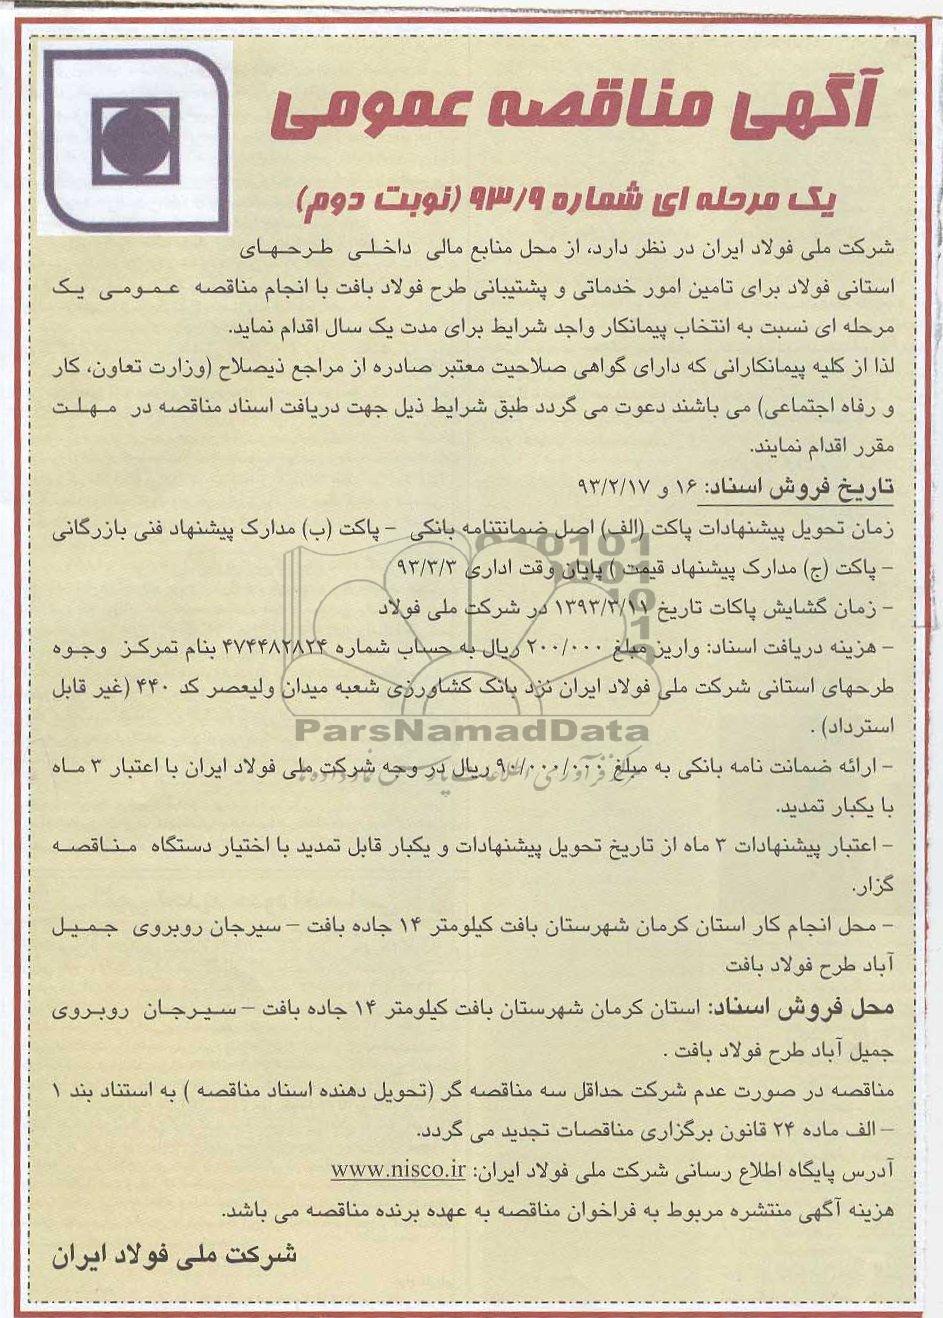 آگهی مناقصه عمومی
یک مرحله ای شماره ۹۳/۹ (نوبت دوم)
شرکت ملی فولاد ایران در نظر دارد، از محل منابع مالی داخلی طرحهای
استانی فولاد برای تامین امور خدماتی و پشتیبانی طرح فولاد بافت با انجام مناقصه عمومی یک
مرحله ای نسبت به انتخاب پیمانکار واجد شرایط برای مدت یک سال اقدام نماید.
لذا از کلیه پیمانکارانی که دارای گواهی صلاحیت معتبر صادره از مراجع ذیصلاح (وزارت تعاون، کار
و رفاه اجتماعی) می باشند دعوت می گردد طبق شرایط ذیل جهت دریافت اسناد مناقصه در مهلت
مقرر اقدام نمایند.
تاریخ فروش اسناد: ۱۶ و ۹۳/۲/۱۷
زمان تحویل پیشنهادات پاکت (الف) اصل ضمانتنامه بانکی – پاکت (ب) مدارک پیشنهاد فنی بازرگانی
– پاکت (ج) مدارک پیشنهاد قیمت ) پایان وقت اداری ۹۳/۳/۳
– زمان گشایش پاکات تاریخ ۱۳۹۳/۳/۱۱ در شرکت ملی فولاد
– هزینه دریافت اسناد: واریز مبلغ ۲۰۰/۰۰۰ ریال به حساب شماره ۴۷۴۴۸۲۸۲۴ بنام تمرکز وجوه
طرحهای استانی شرکت ملی فولاد ایران نزد بانک کشاورزی شعبه میدان ولیعصر کد ۴۴۰ (غیر قابل
استرداد) .
ParsNamadData
– ارائه ضمانت نامه بانکی به مبلغ ۹۰/۰۰۰/۰۰۰ ریال در وجه شرکت ملی فولاد ایران با اعتبار ۳ ماه
با یکبار تمدید.
– اعتبار پیشنهادات ۳ ماه از تاریخ تحویل پیشنهادات و یکبار قابل تمدید با اختیار دستگاه مناقصه
گزار.
– محل انجام کار استان کرمان شهرستان بافت کیلومتر ۱۴ جاده بافت – سیرجان روبروی جمیل
آباد طرح فولاد بافت
محل فروش اسناد: استان کرمان شهرستان بافت کیلومتر ۱۴ جاده بافت – سیرجان روبروی
جمیل آباد طرح فولاد بافت .
مناقصه در صورت عدم شرکت حداقل سه مناقصه گر (تحویل دهنده اسناد مناقصه ) به استناد بند ۱
– الف ماده ۲۴ قانون برگزاری مناقصات تجدید می گردد.
آدرس پایگاه اطلاع رسانی شرکت ملی فولاد ایران: www.nisco.ir
هزینه آگهی منتشره مربوط به فراخوان مناقصه به عهده برنده مناقصه می باشد.
شرکت ملی فولاد ایران